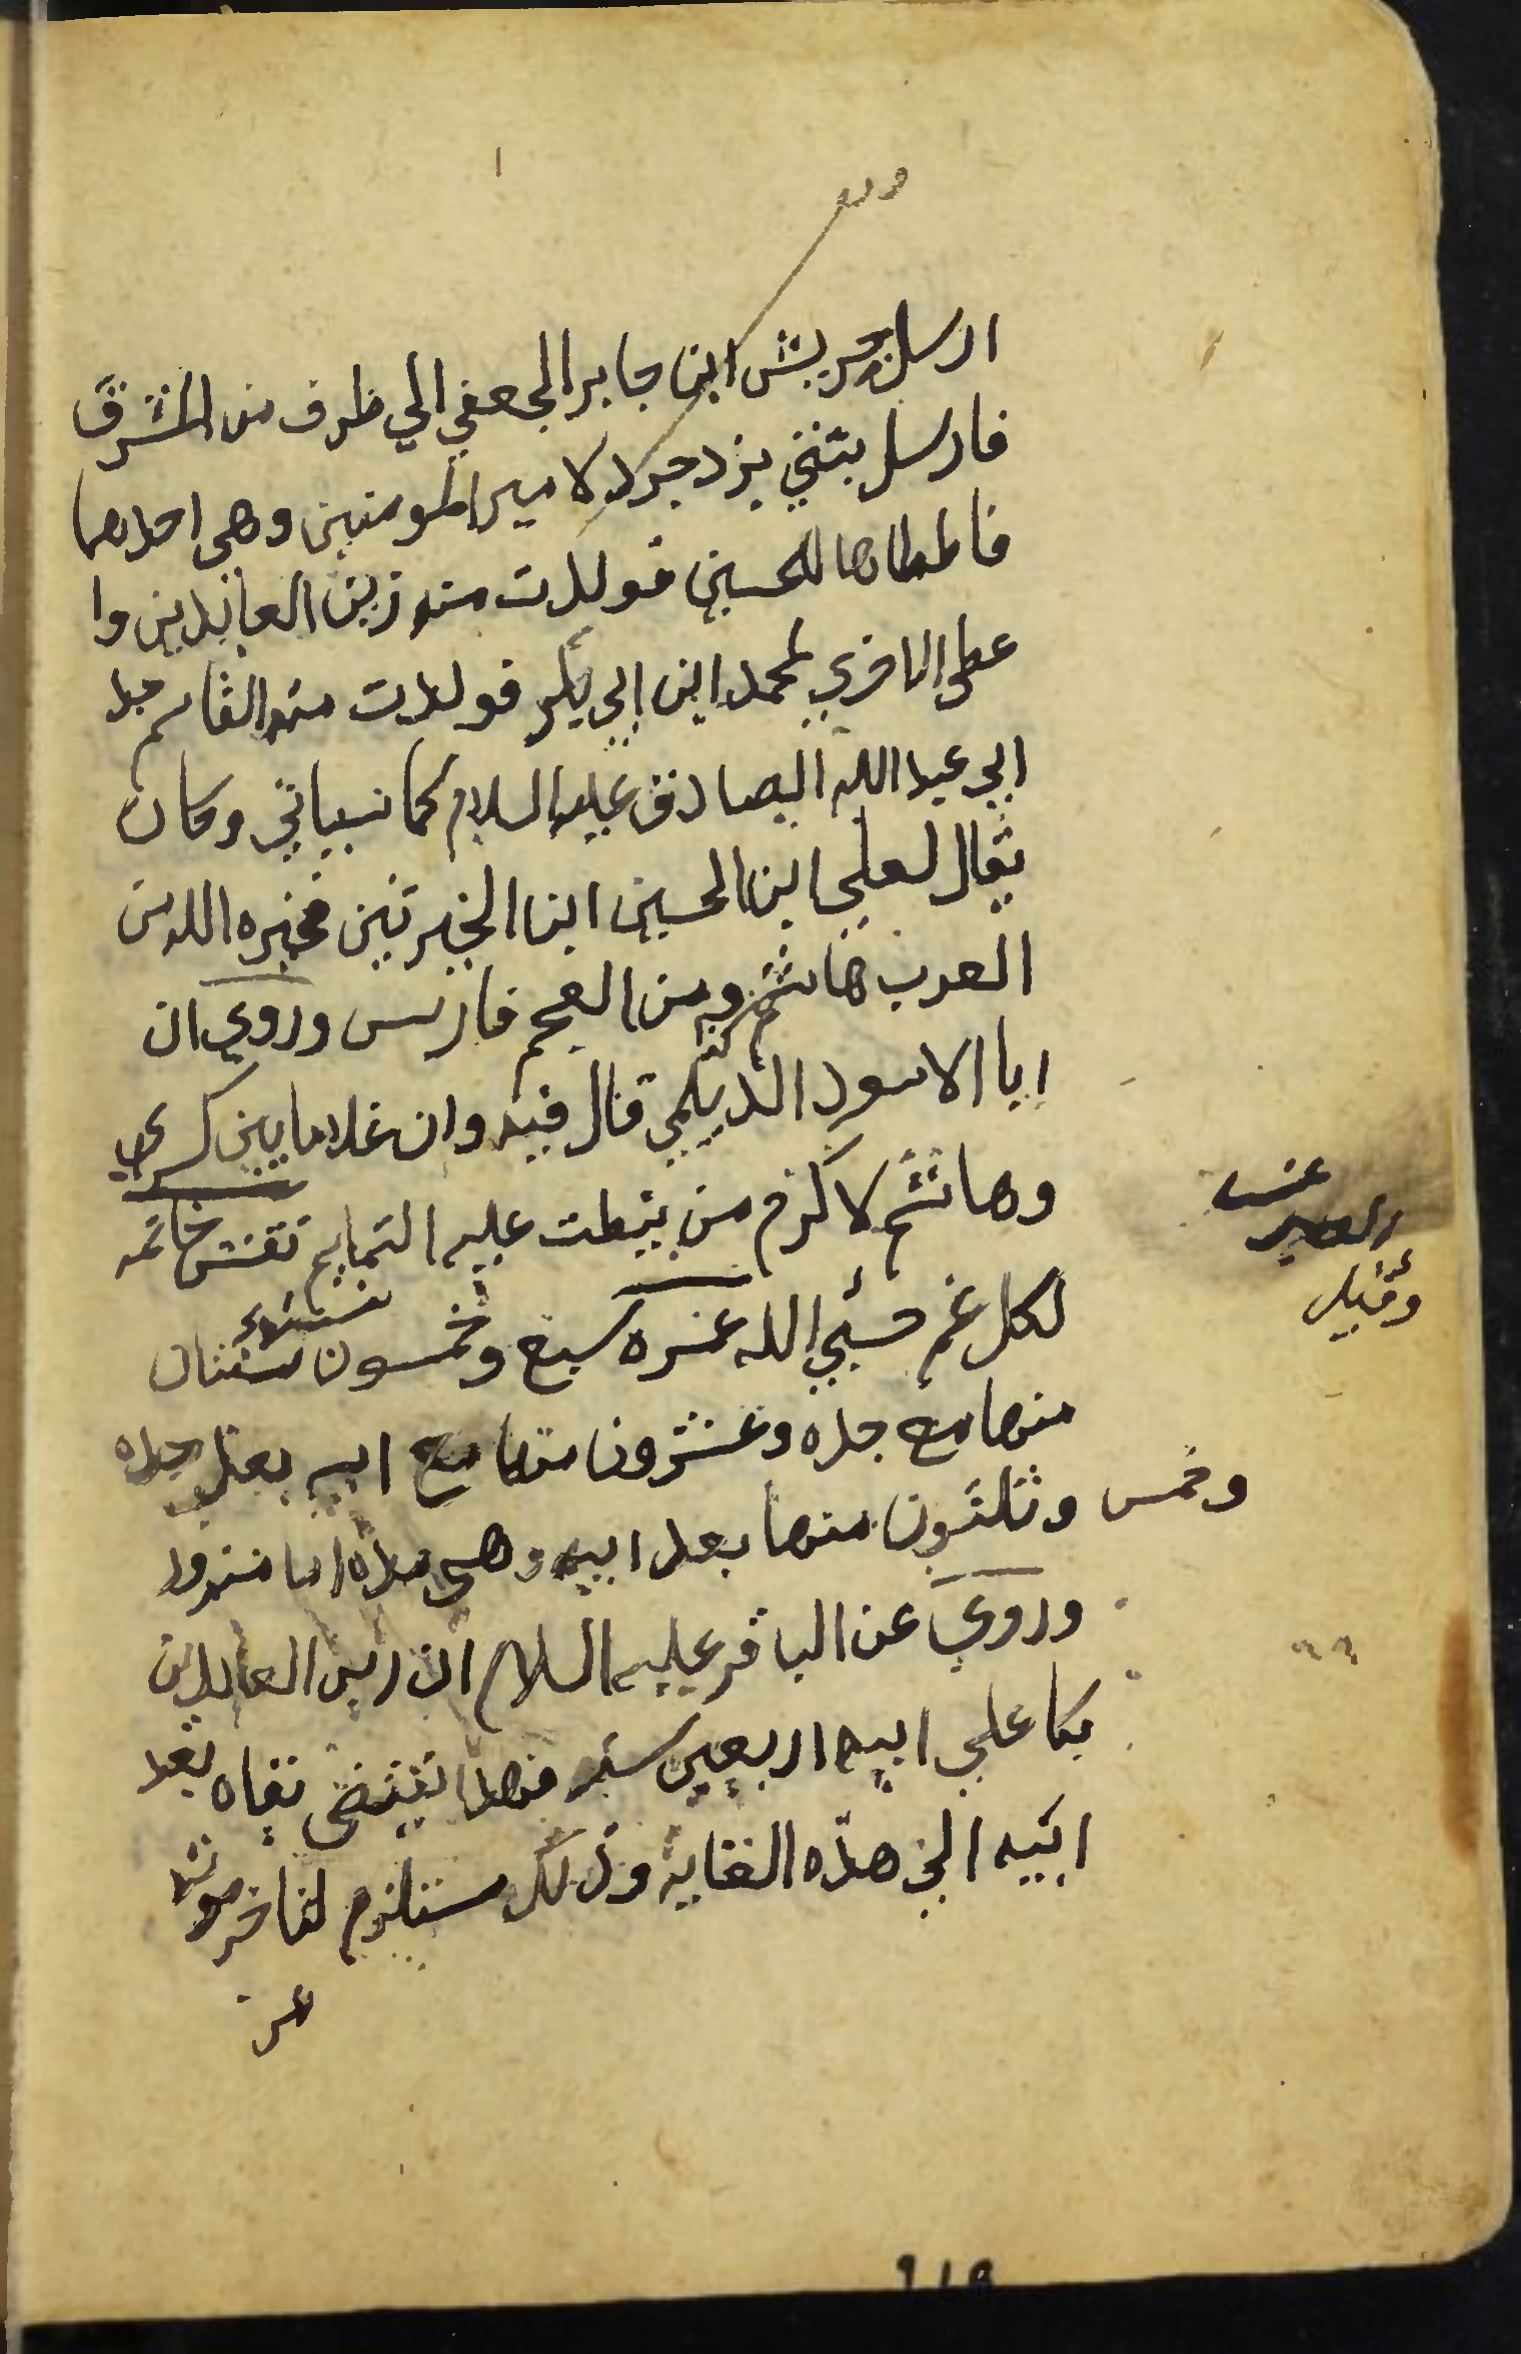 ارسل حريش ابن جابر الجعفي الي طرف من المشرق
فارسل بنتي يزدجرد لامير المومنين وهي احدهما
فاعطاها للحسين فولدت منه زين العابدين وا
عطي الاخري لمحمد ابن ابي بكر فولدت منه القاسم جد
ابي عبد الله الصادق عليه السلام كما سياتي وكان
يقال لعلي ابن الحسين ابن الخيرتين فخيره الله من
العرب هاشم ومن العجم فارس وروي ان
ابا الاسود الديلمي قال فيه وان غلاما بين كسري
وهاشم لاكرم من نيطت عليه التمايم نقش خاتمه
لكل غم حسبي الله عمره سبع وخمسون سنة سنتان
وقيل
منها مع جده وعشرون منها مع ابيه بعد جده
وخمس وثلثون منها بعد ابيه وهي مدة امامته
وروي عن الباقر عليه السلام ان زين العابدين
بكا علي ابيه اربعين سنه فهذا يقتضي بقاه بعد
ابيه الي هذه الغاية وذلك مستلزم لتاخر موته
عن